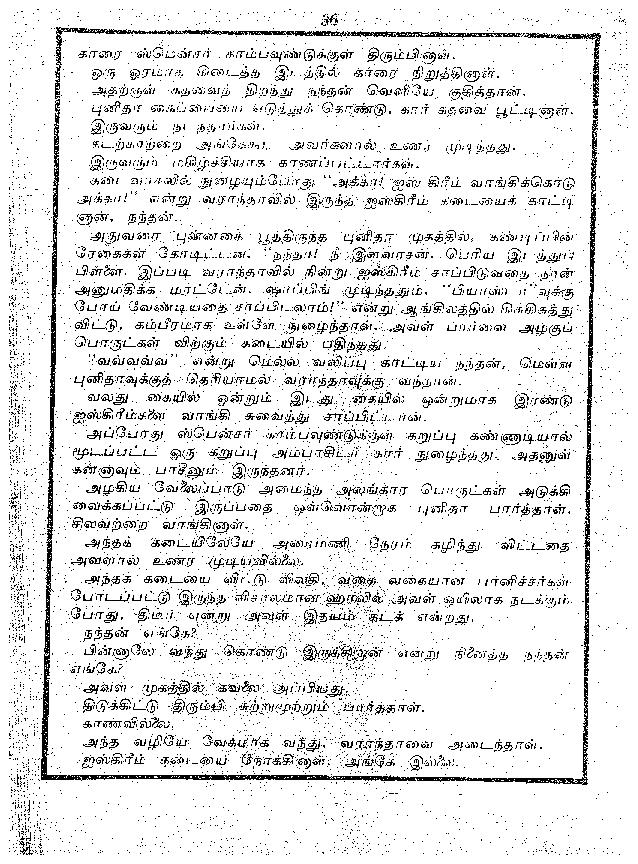 36
காரை ஸ்பென்சர் காம்பவுண்டுக்குள் திருப்பினாள்.
ஒரு ஓரமாக கிடைத்த இடத்தில் காரை நிறுத்தினாள்.
அதற்குள் கதவைத் திறந்து நந்தன் வெளியே குதித்தான்.
புனிதா கைப்பையை எடுத்துக் கொண்டு, கார் கதவை பூட்டினாள்.
இருவரும் நடந்தார்கள்.
கடற்காற்றை அங்கேகூட அவர்களால் உணர முடிந்தது.
இருவரும் மகிழ்ச்சியாக காணப்பட்டார்கள்.
கடை வாசலில் நுழையும்போது "அக்கா! ஐஸ் கிரீம் வாங்கிக்கொடு
அக்கா!" என்று வராந்தாவில் இருந்த ஐஸ்கிரீம் கடையைக் காட்டி
னான், நந்தன்.
அதுவரை புன்னகை பூத்திருந்த புனிதா முகத்தில், கண்டிப்பின்
ரேகைகள் கோடிட்டன. "நந்தா! நீ இளவரசன். பெரிய இடத்துப்
பிள்ளை. இப்படி வராந்தாவில் நின்று ஐஸ்கிரீம் சாப்பிடுவதை நான்
அனுமதிக்க மாட்டேன். ஷாப்பிங் முடிந்ததும், "பியாஸா"வுக்கு
போய் வேண்டியதை சாப்பிடலாம்!" என்று ஆங்கிலத்தில்
விட்டு, கம்பீரமாக உள்ளே நுழைந்தாள். அவள் பார்வை அழகுப்
பொருட்கள் விற்கும் கடையில் பதிந்தது.
"வவ்வவ்வ" என்று மெல்ல வலிப்பு காட்டிய நந்தன், மெல்ல
புனிதாவுக்குத் தெரியாமல் வராந்தாவுக்கு வந்தான்.
வலது கையில் ஒன்றும் இடது கையில் ஒன்றுமாக இரண்டு
ஐஸ்கிரீம்களை வாங்கி சுவைத்து சாப்பிட்டான்.
அப்போது ஸ்பென்சர் காம்பவுண்டுக்குள் கறுப்பு கண்ணாடியால்
மூடப்பட்ட ஒரு கறுப்பு அம்பாசிடர் கார் நுழைந்தது. அதனுள்
கண்ணாவும் பாசினும் இருந்தனர்.
அழகிய வேலைப்பாடு அமைந்த அலங்கார பொருட்கள் அடுக்கி
வைக்கப்பட்டு இருப்பதை ஒவ்வொன்றாக புனிதா பார்த்தாள்.
சிலவற்றை வாங்கினாள்.
அந்தக் கடையிலேயே அரைமணி நேரம் கழிந்து விட்டதை
அவளால் உணர முடியவில்லை.
அந்தக் கடையை விட்டு விலகி, வகை வகையான பர்னிச்சர்கள்
போடப்பட்டு இருந்த விசாலமான ஹாலில் அவள் ஒயிலாக நடக்கும்
போது, திடீர் என்று அவள் இதயம் திடக் என்றது.
நந்தன் எங்கே?
பின்னாலே வந்து கொண்டு இருக்கிறான் என்று நினைத்த நந்தன்
எங்கே?
அவள் முகத்தில் கவலை அப்பியது.
திடுக்கிட்டு திரும்பி சுற்றுமுற்றும் பார்த்தாள்.
காணவில்லை.
அந்த வழியே வேகமாக வந்து, வராந்தாவை அடைந்தாள்.
ஐஸ்கிரீம் கடையை நோக்கினாள். அங்கே இல்லை.